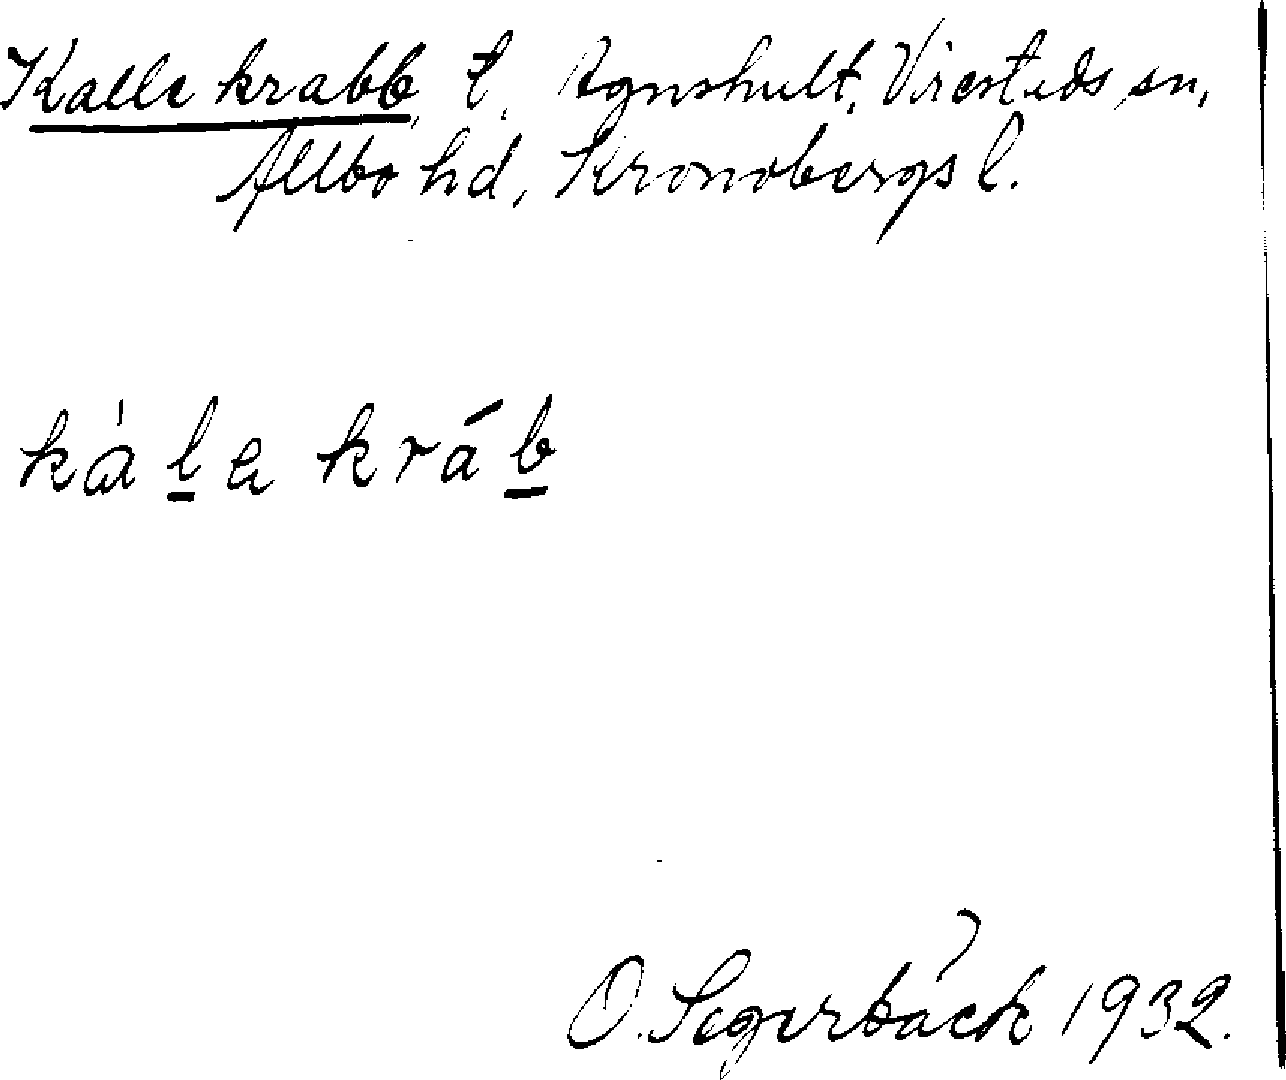 Kalle krabb, t. Agnshult, Virestads sn,
Allbo hd, Kronobergs l.
kàle kráb
O. Segerbäck 1932.